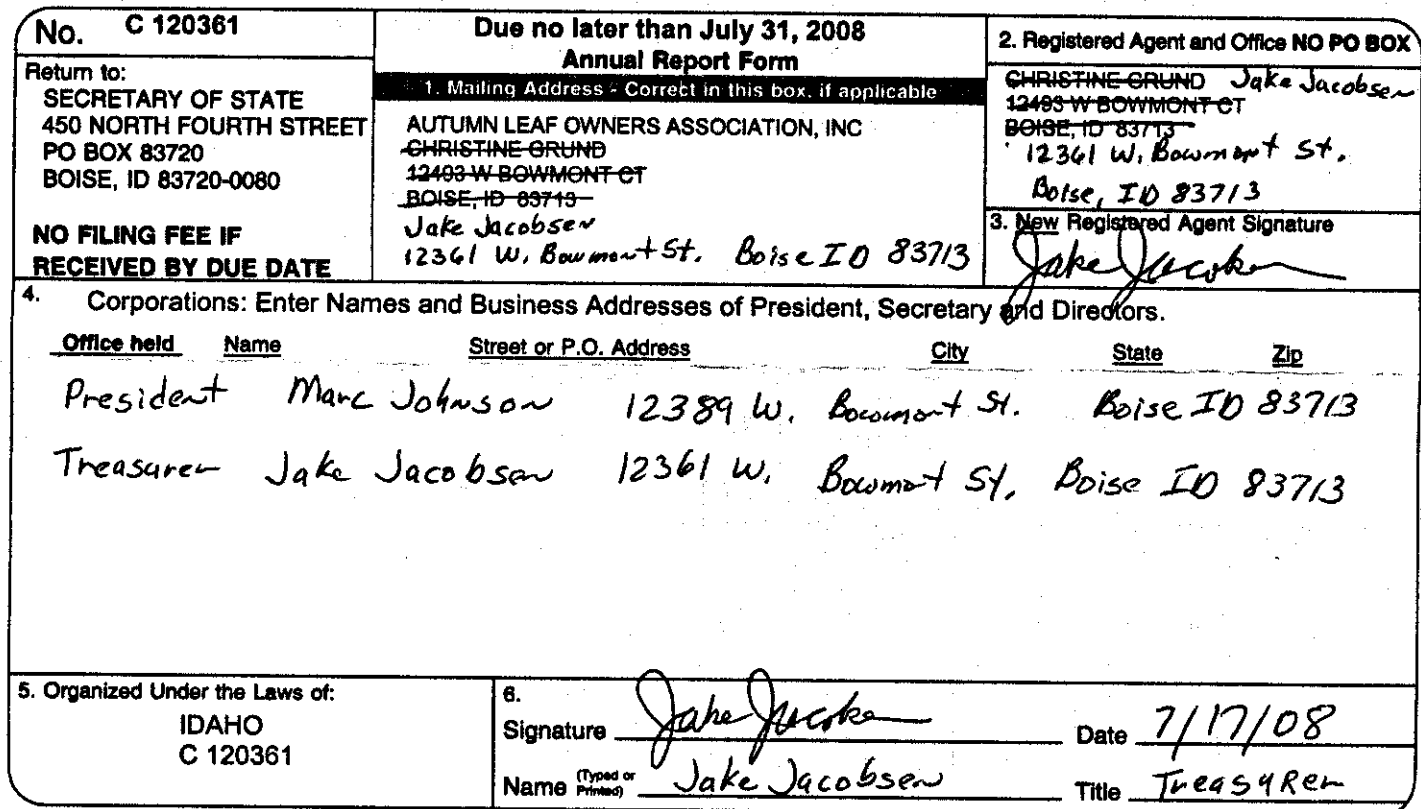 No. C 120361
Return to:
SECRETARY OF STATE
450 NORTH FOURTH STREET
PO BOX 83720
BOISE, ID 83720-0080
NO FILING FEE IF
RECEIVED BY DUE DATE
Due no later than July 31, 2008
Annual Report Form
1. Mailing Address - Correct in this box, if applicable
AUTUMN LEAF OWNERS ASSOCIATION, INC
CHRISTINE GRUND
12493 W BOWMONT CT
BOISE, ID 83713
Jake Jacobsen
12361 W. Bowmont St. Boise ID 83713
2. Registered Agent and Office NO PO BOX
CHRISTINE GRUND Jake Jacobsen
12493 W BOWMONT CT
BOISE, ID 83713
12361 W. Bowmont St.
Boise, ID 83713
3. New Registered Agent Signature
Jake Jacobsen
4. Corporations: Enter Names and Business Addresses of President, Secretary and Directors.
Office held Name Street or P.O. Address City State Zip
President Marc Johnson 12389 W. Bowmont St. Boise ID 83713
Treasurer Jake Jacobsen 12361 W. Bowmont St. Boise ID 83713
5. Organized Under the Laws of:
IDAHO
C 120361
6.
Signature Jake Jacobsen Date 7/17/08
Name (Typed or Printed) Jake Jacobsen Title Treasurer